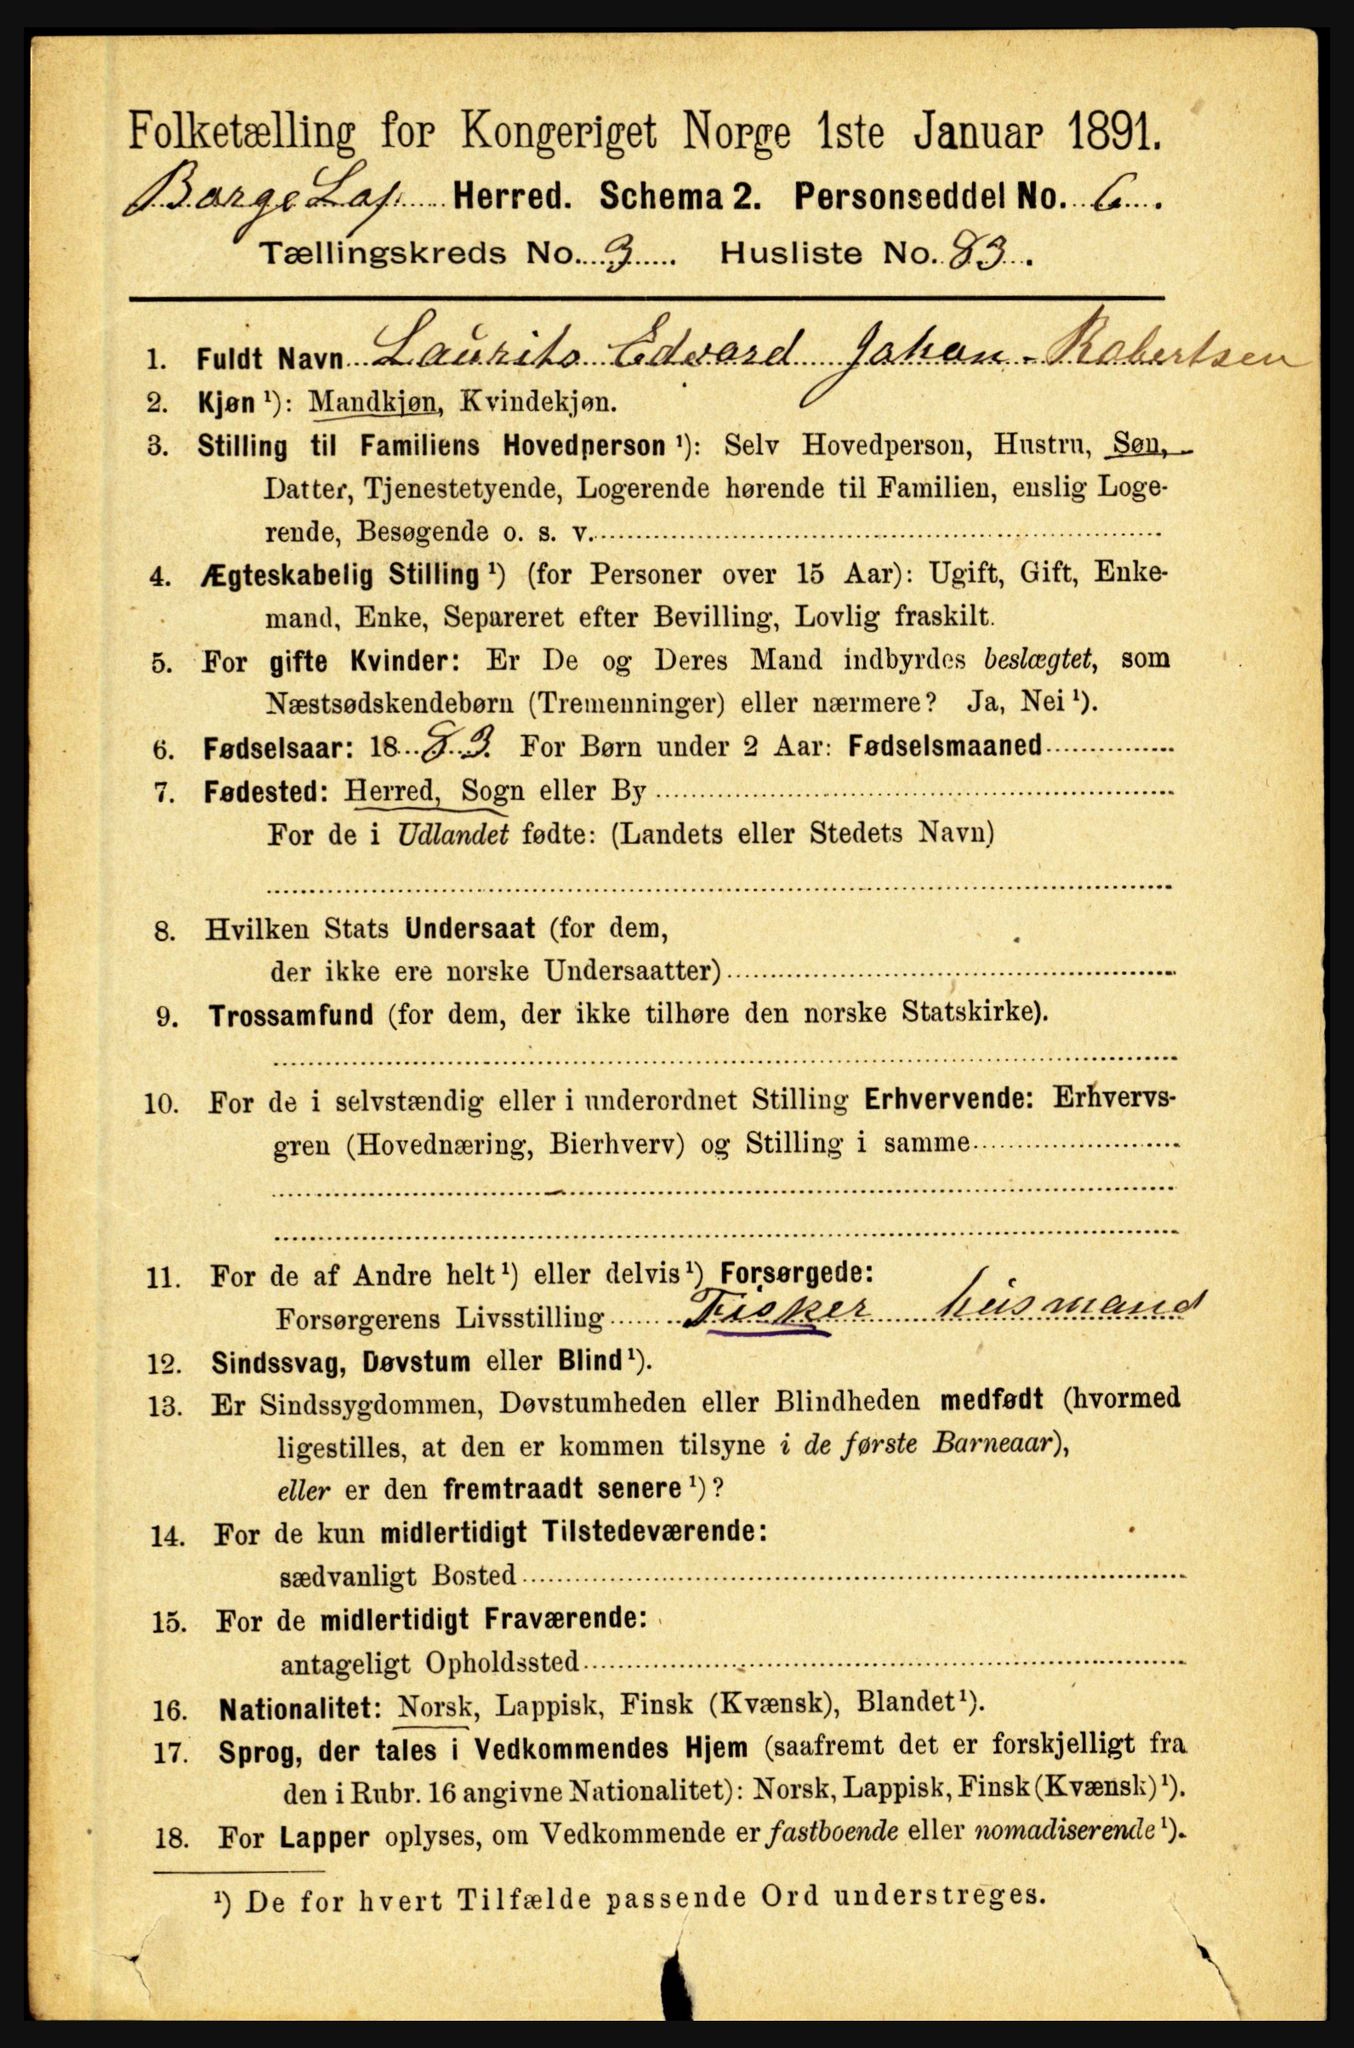 Folketælling for Kongeriget Norge 1ste Januar 1891.
Borge Lof. Herred. Schema 2. Personseddel No. 6.
Tællingskreds No. 3. Husliste No. 83.
1. Fuldt Navn Laurits Edvard Johan Robertsen
2. Kjøn ¹): Mandkjøn, Kvindekjøn.
3. Stilling til Familiens Hovedperson ¹): Selv Hovedperson, Hustru, Søn,
Datter, Tjenestetyende, Logerende hørende til Familien, enslig Loge-
rende, Besøgende o. s. v.
4. Ægteskabelig Stilling ¹) (for Personer over 15 Aar): Ugift, Gift, Enke-
mand, Enke, Separeret efter Bevilling, Lovlig fraskilt.
5. For gifte Kvinder: Er De og Deres Mand indbyrdes beslægtet, som
Næstsødskendebørn (Tremenninger) eller nærmere? Ja, Nei ¹).
6. Fødselsaar: 1883. For Børn under 2 Aar: Fødselsmaaned
7. Fødested: Herred, Sogn eller By
For de i Udlandet fødte: (Landets eller Stedets Navn)
8. Hvilken Stats Undersaat (for dem,
der ikke ere norske Undersaatter)
9. Trossamfund (for dem, der ikke tilhøre den norske Statskirke).
10. For de i selvstændig eller i underordnet Stilling Erhvervende: Erhvervs-
gren (Hovednæring, Bierhverv) og Stilling i samme
11. For de af Andre helt ¹) eller delvis ¹) Forsørgede:
Forsørgerens Livsstilling Fisker husmand
12. Sindssvag, Døvstum eller Blind ¹).
13. Er Sindssygdommen, Døvstumheden eller Blindheden medfødt (hvormed
ligestilles, at den er kommen tilsyne i de første Barneaar),
eller er den fremtraadt senere ¹)?
14. For de kun midlertidigt Tilstedeværende:
sædvanligt Bosted
15. For de midlertidigt Fraværende:
antageligt Opholdssted
16. Nationalitet: Norsk, Lappisk, Finsk (Kvænsk), Blandet ¹).
17. Sprog, der tales i Vedkommendes Hjem (saafremt det er forskjelligt fra
den i Rubr. 16 angivne Nationalitet): Norsk, Lappisk, Finsk (Kvænsk) ¹).
18. For Lapper oplyses, om Vedkommende er fastboende eller nomadiserende ¹).
¹) De for hvert Tilfælde passende Ord understreges.